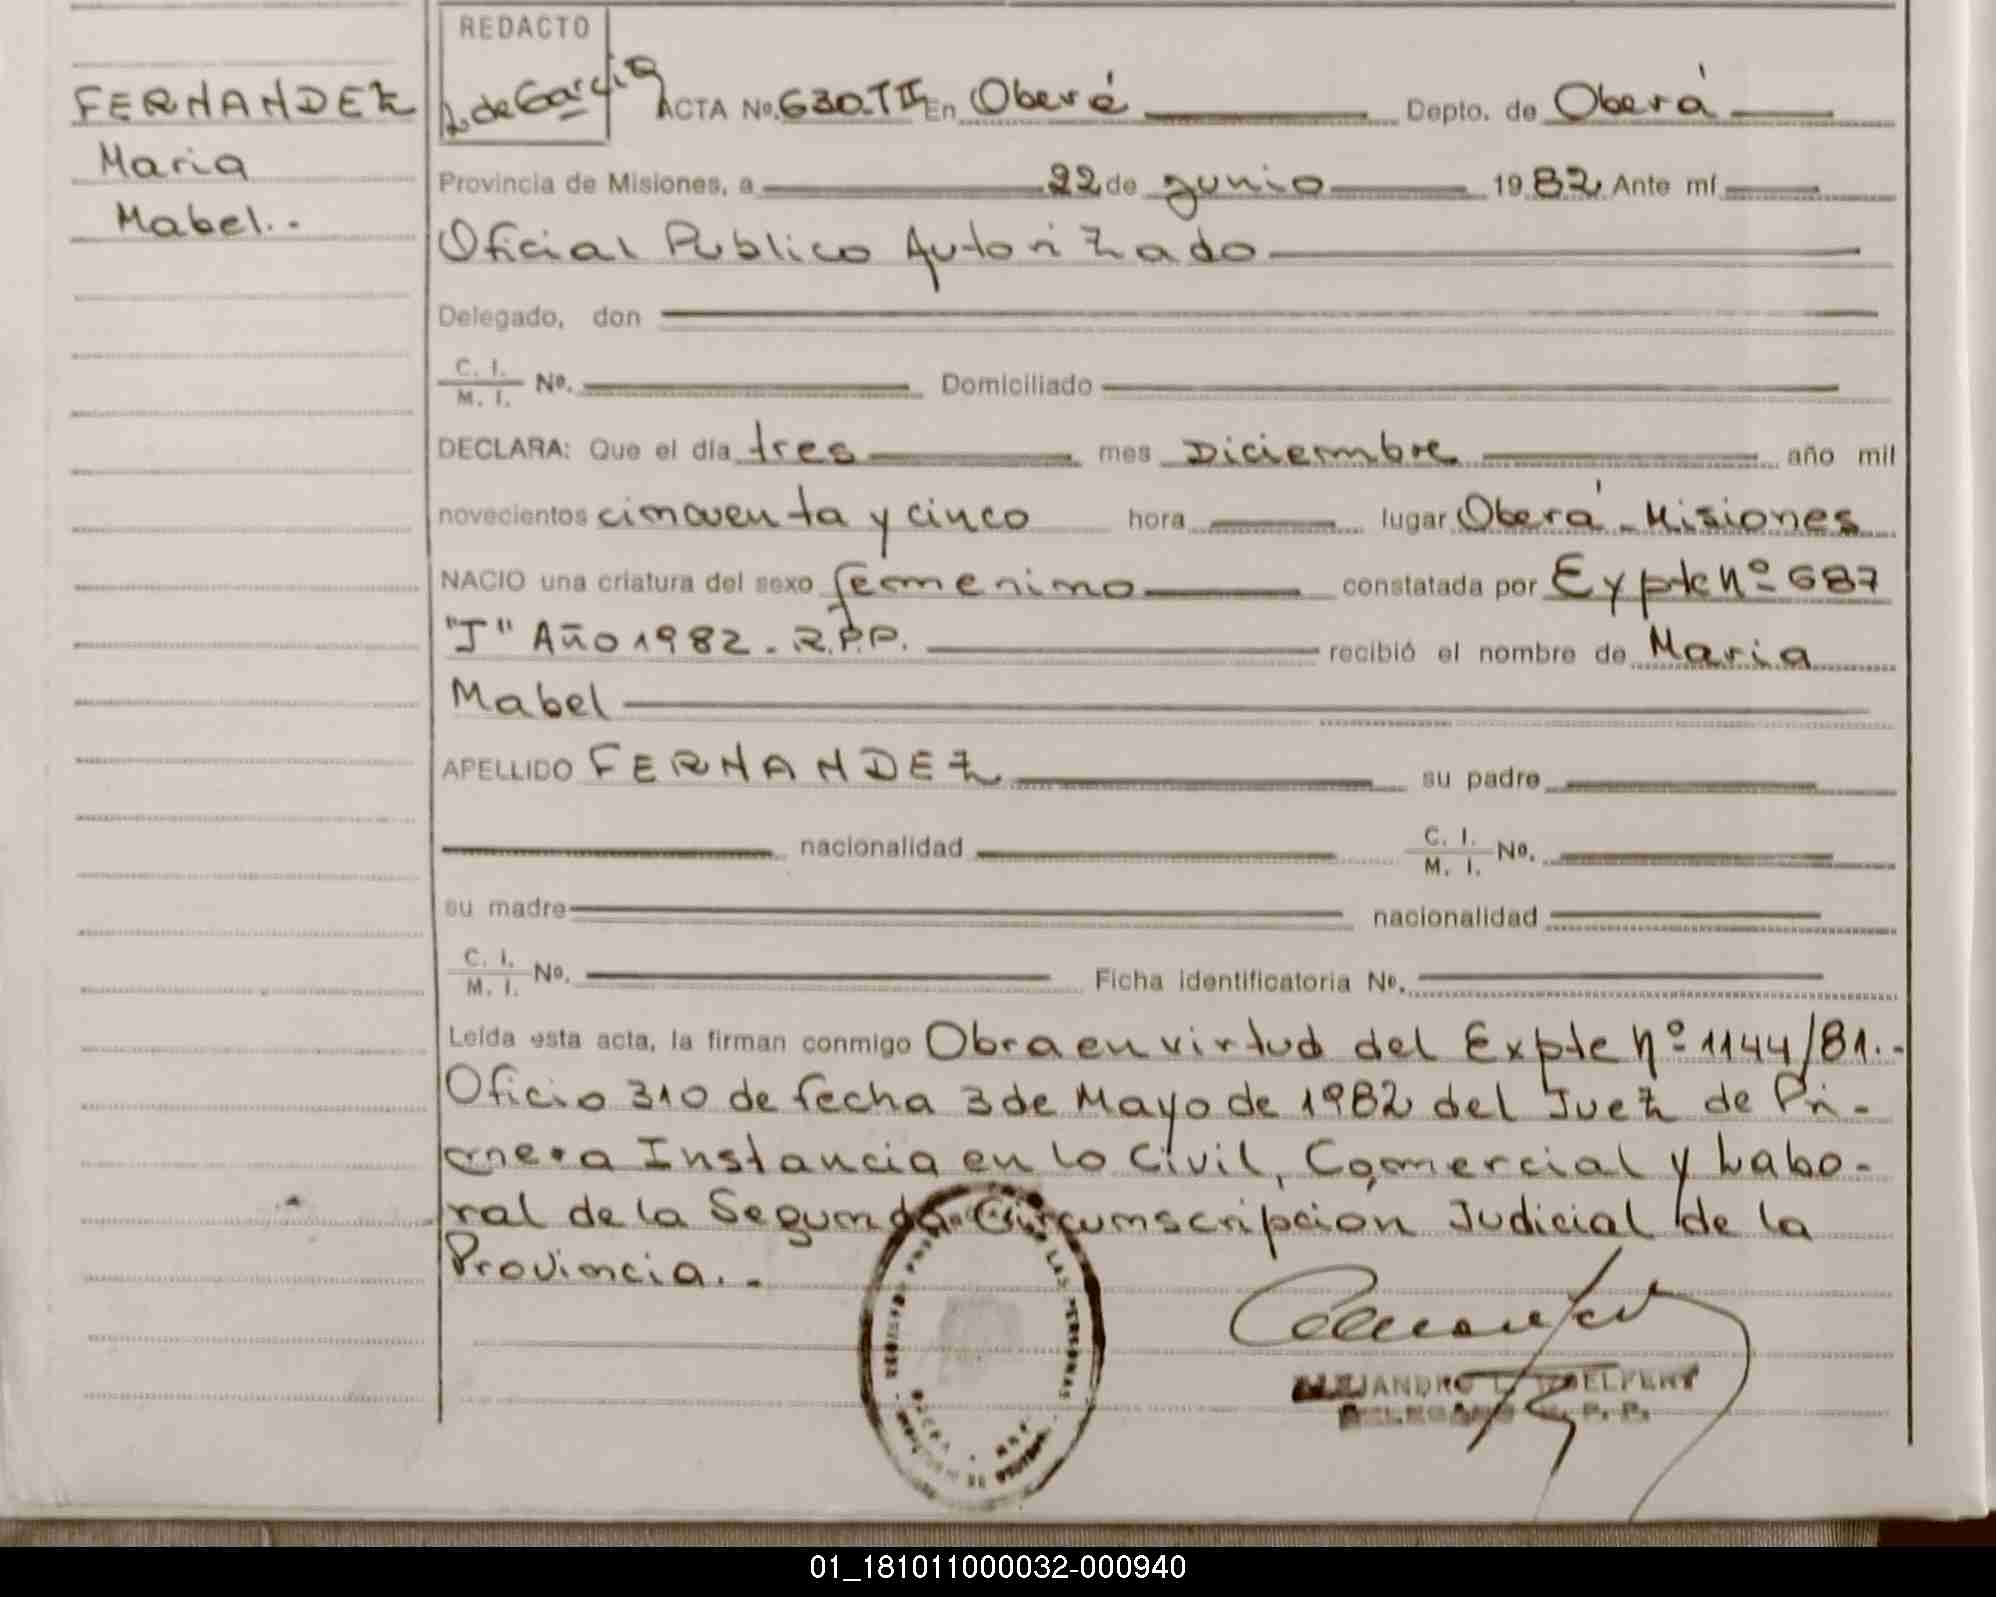 REDACTO
L. de Garcia
FERNANDEZ
Maria
Mabel.-
ACTA Nº. 630.TII En Oberá Depto. de Oberá
Provincia de Misiones, a 22 de junio 1982 Ante mí
Oficial Publico Autorizado
Delegado, don
C. I. / M. I. Nº. Domiciliado
DECLARA: Que el día tres mes Diciembre año mil
novecientos cincuenta y cinco hora lugar Oberá - Misiones
NACIO una criatura del sexo femenino constatada por Expte Nº 687
"J" Año 1982 - R.P.P. recibió el nombre de Maria
Mabel
APELLIDO FERNANDEZ su padre
nacionalidad C. I. / M. I. Nº.
su madre nacionalidad
C. I. / M. I. Nº. Ficha identificatoria Nº.
Leída esta acta, la firman conmigo Obra en virtud del Expte Nº 1144/81.-
Oficio 310 de fecha 3 de Mayo de 1982 del Juez de Pri-
mera Instancia en lo Civil, Comercial y Labo-
ral de la Segunda Circunscripción Judicial de la
Provincia.-
LAS PERSONAS
ALEJANDRO L.
DELEGADO R. P. P.
01_181011000032-000940